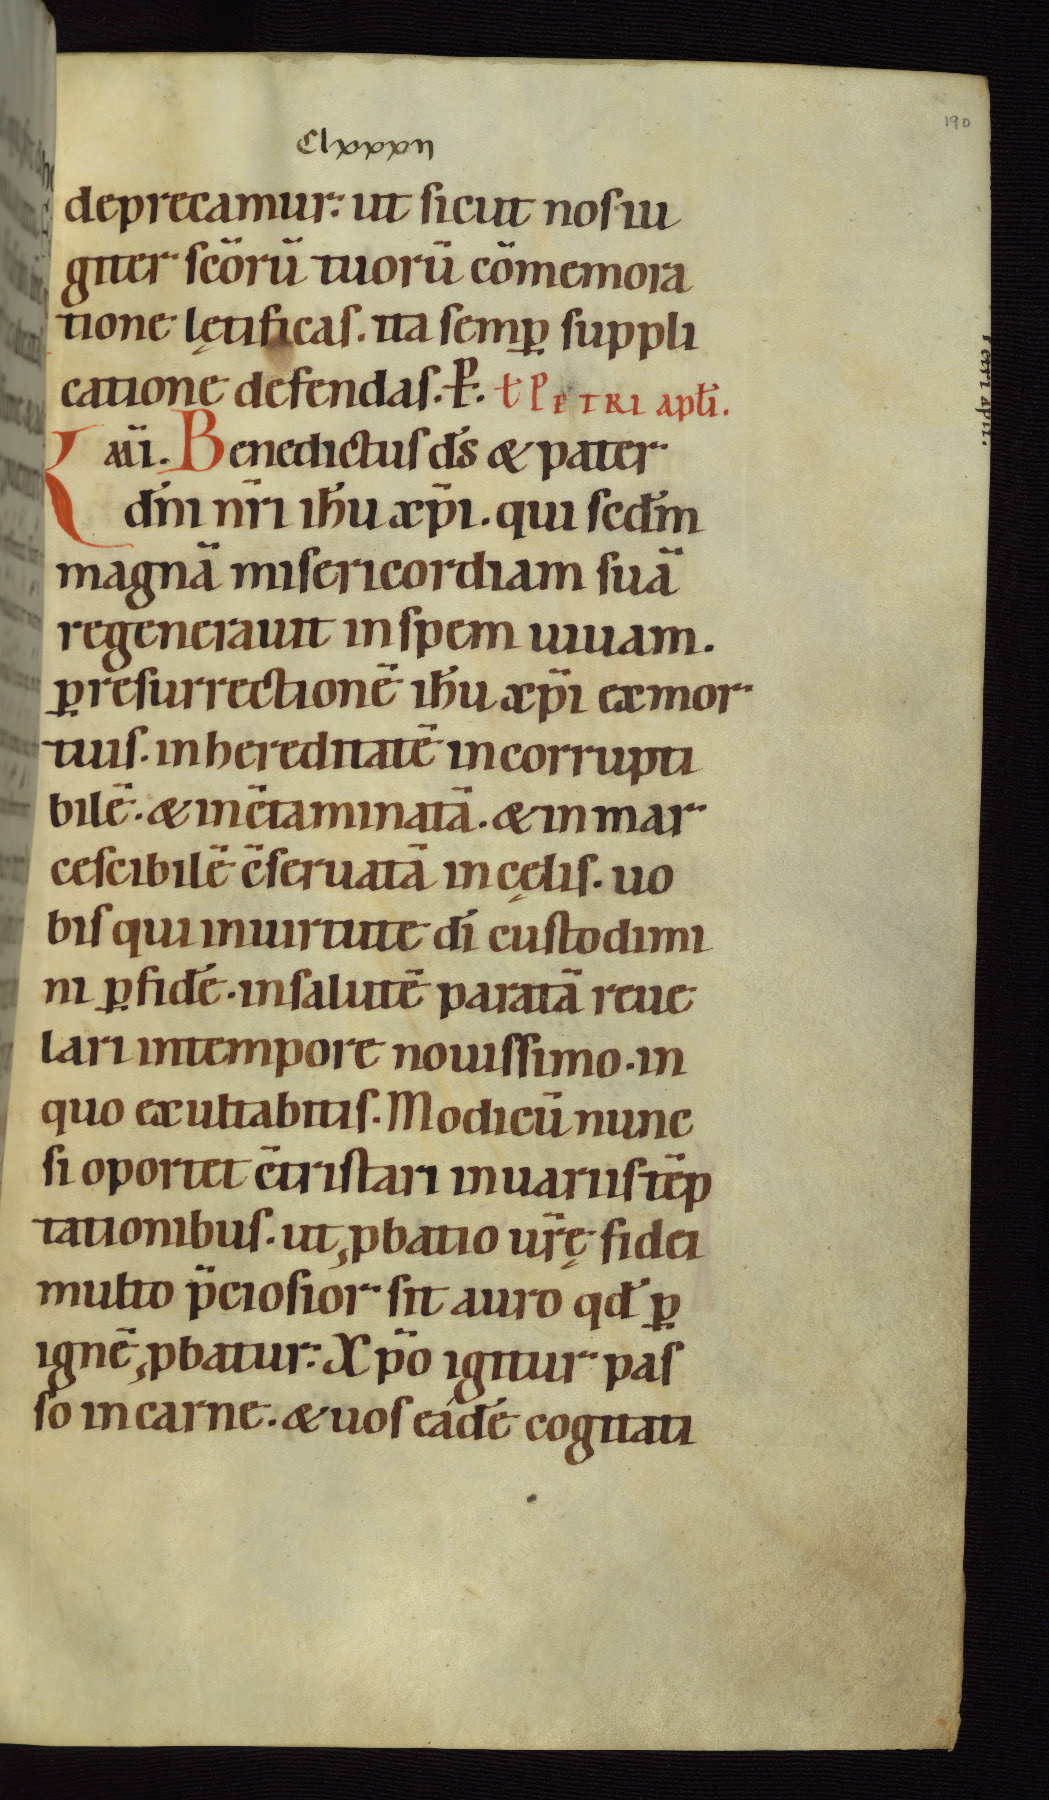 190
Clxxxii
deprecamur: ut sicut nos iu
giter scõrũ tuorũ cõmemora
tione lętificas. ita semꝑ suppli
catione defendas. P. t PETRI apłi.
Kmi. Benedictus ds̄ & pater
dñi nr̃i ihu xp̃i. qui scdm
magnã misericordiam suã
regenerauit in spem uiuam.
ꝑ resurrectionẽ ihu xp̃i ex mor
tuis. in hereditatẽ incorrupti
bilẽ. & inc̃taminatã. & inmar
cescibilẽ c̃seruatã in cęlis. uo
bis qui in uirtute dĩ custodimi
ni ꝑ fidẽ. in salutẽ paratã reue
lari in tempore nouissimo. in
quo exultabitis. Modicũ nunc
si oportet c̃tristari in uariis tẽp
tationibus. ut ꝓbatio ur̃ę fidei
multo p̃ciosior sit auro qđ ꝑ
ignẽ ꝓbatur: Xp̃o igitur pas
so in carne. & uos eádẽ cogitati